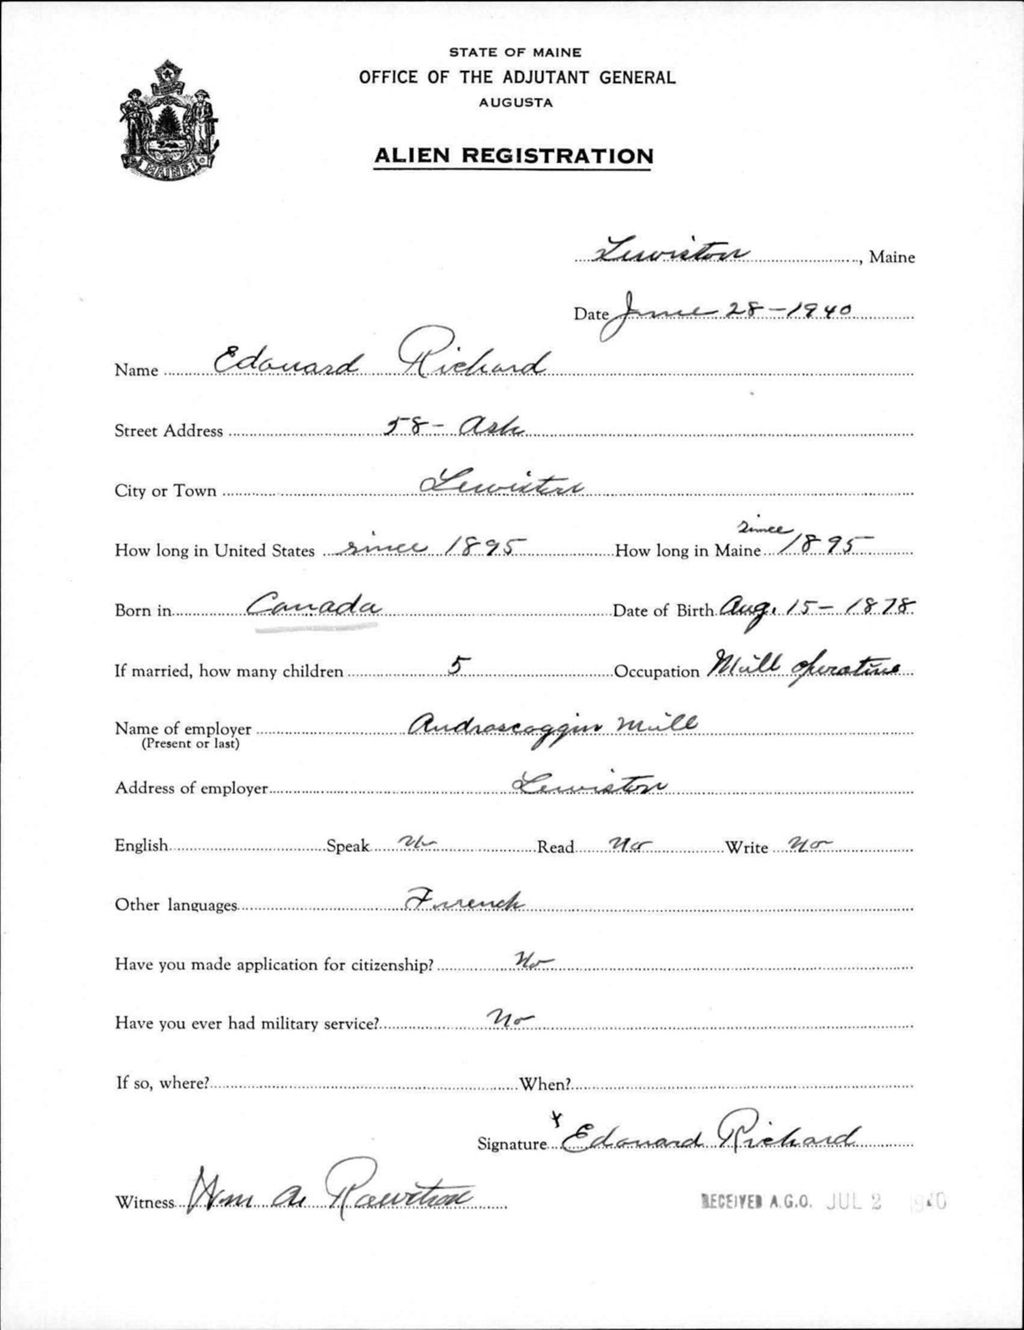 STATE OF MAINE
OFFICE OF THE ADJUTANT GENERAL
AUGUSTA
ALIEN REGISTRATION
MAINE
Lewiston, Maine
Date June 28-1940
Name Edouard Richard
Street Address 58- Ash
City or Town Lewiston
How long in United States since 1895 How long in Maine since 1895
Born in Canada Date of Birth Aug. 15- 1878
If married, how many children 5 Occupation Mill operative
Name of employer Androscoggin Mill
(Present or last)
Address of employer Lewiston
English Speak No Read No Write No
Other languages French
Have you made application for citizenship? No
Have you ever had military service? No
If so, where? When?
Signature x Edouard Richard
Witness Wm A.
RECEIVED A.G.O. JUL 2 1940